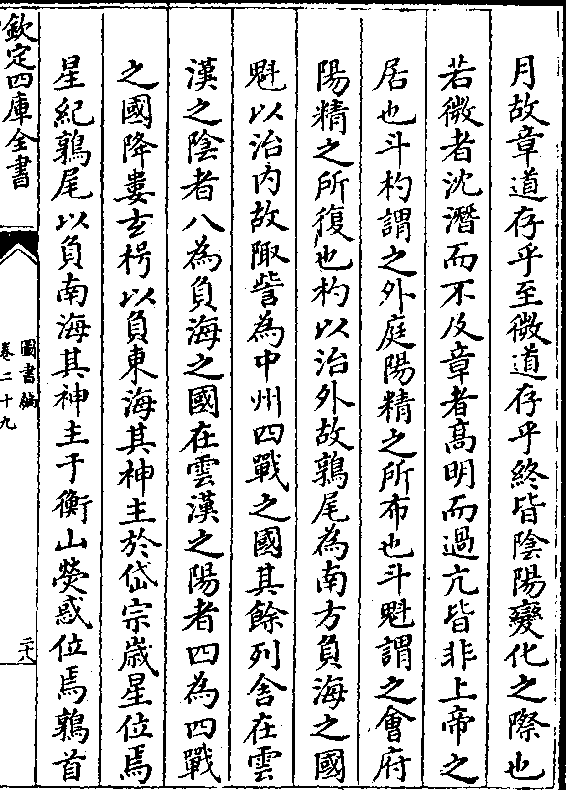 月故章道存乎至微道存乎終皆陰陽變化之際也
若微者沈潛而不及章者高明而過亢皆非上帝之
居也斗杓謂之外庭陽精之所布也斗魁謂之會府
陽精之所復也杓以治外故鶉尾為南方負海之國
魁以治内故陬訾為中州四戰之國其餘列舍在雲
漢之陰者八為負海之國在雲漢之陽者四為四戰
之國降婁玄枵以負東海其神主於岱宗歲星位焉
星紀鶉尾以負南海其神主于衡山熒惑位焉鶉首
欽定四庫全書
圖書編
卷二十九
二十八